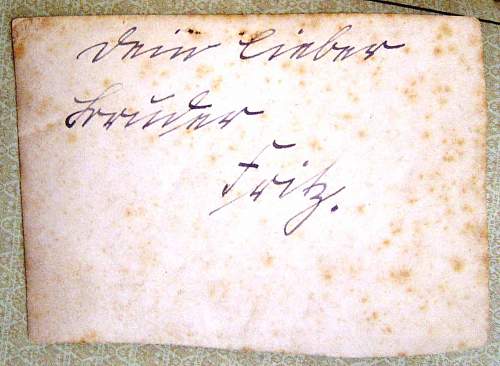 Dein lieber
Bruder
Fritz.